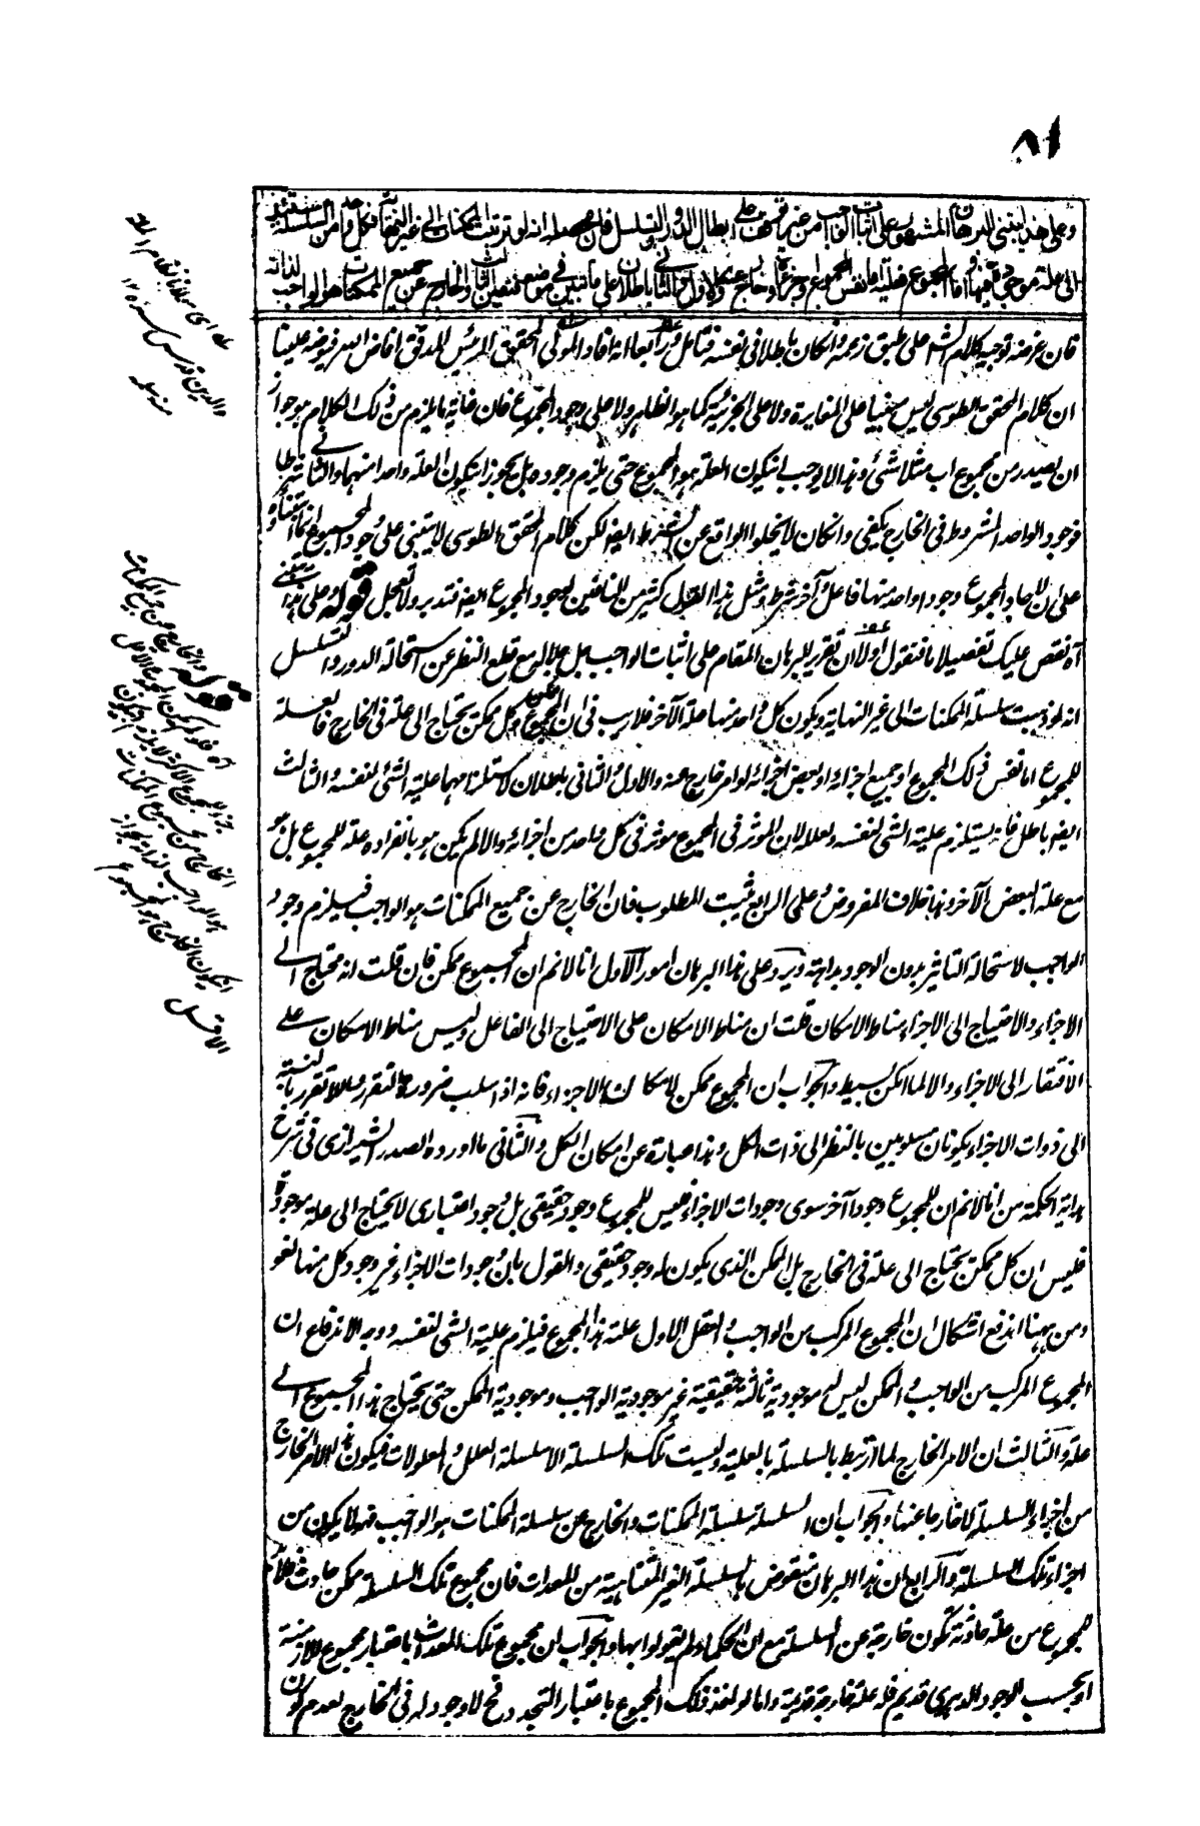 ٨١
وعلى هذا يبتنى البرهان المشهور على اثبات الواجب من غير توقف على ابطال الدور والتسلسل فان محصله انه لو ترتب الممكنات الى غير النهاية فكل واحد من السلسلة يستند
الى علة موجودة فيها واما المجموع فعلته اما نفس المجموع او جزءه او خارج عنه والاول والثانى باطلان على ما تبين فى موضعه فتعين الثالث والخارج عن جميع الممكنات هو الواجب لذاته
فان غرضه توجيه كلام الشم على طبق زعمه وانكان باطلا فى نفسه فتامل ورابعا انه افاد المولى المحقق الرئيس المدقق افاض الله فيوضه علينا
ان كلام المحقق الطوسى ليس مبنيا على المغايرة ولا على الجزئية كما هو الظاهر ولا على وجود المجموع فان غاية ما يلزم من ذلك الكلام هو جواز
ان يصدر من مجموع اب مثلا شئ وهذا لا يوجب انيكون العلة هو المجموع حتى يلزم وجوده بل يجوز انيكون العلة واحدا منهما والثانى شرطا
فوجود الواحد المشروط فى الخارج يكفى وانكان لا يخلو الواقع عن الشرط ايضا لكن كلام المحقق الطوسى لا يبتنى على وجود المجموع
على ان لايجاد المجموع وجودا واحد منهما فاعل وآخر شرط ومثل هذا القول كثير من النافين لوجود المجموع ايضا فتدبر ولا تعجل قوله وعلى هذا يبتنى
آه نقص عليك تفصيلا ما فنقول اولا ان تقرير البرهان المقام على اثبات الواجب جل جلاله مع قطع النظر عن استحالة الدور والتسلسل
انه لو ذهبت سلسلة الممكنات الى غير النهاية ويكون كل واحد منها علة الآخر فلا ريب فى ان المجموع ممكن وكل ممكن يحتاج الى علة فى الخارج فالعلة
للمجموع اما نفس ذلك المجموع او جميع اجزائه او بعض اجزائه او امر خارج عنه والاول والثانى باطلان لاستلزامهما علية الشئ لنفسه والثالث
ايضا باطل فانه يستلزم علية الشئ لنفسه ولعلله لان الموثر فى المجموع موثر فى كل واحد من اجزائه والا لم يكن هو بانفراده علة للمجموع بل هو
مع علة البعض الآخر وهذا خلاف المفروض وعلى الرابع ثبت المطلوب فان الخارج عن جميع الممكنات هو الواجب فيلزم وجود
الواجب لاستحالة التاثير بدون الوجود بداهة ويرد على هذا البرهان امور الاول انا لا نم ان المجموع ممكن فان قلت انه محتاج الى
الاجزاء والاحتياج الى الاجزاء مناط الامكان قلت ان مناط الامكان على الاحتياج الى الفاعل وليس مناط الامكان على
الافتقار الى الاجزاء والا لما امكن بسيط والجواب ان المجموع ممكن لامكان الاجزاء فانه اذا سلب ضرورة التقرر واللاتقرر بالنسبة
الى ذوات الاجزاء يكونان مسلوبين بالنظر الى ذات الكل وهذا عبارة عن امكان الكل والثانى ما اورده الصدر الشيرازى فى شرح
هداية الحكمة من انا لا نم ان للمجموع وجودا آخر سوى وجودات الاجزاء فليس للمجموع وجود حقيقى بل وجود اعتبارى لا يحتاج الى علة موجودة
فليس ان كل ممكن يحتاج الى علة فى الخارج بل الممكن الذى يكون له وجود حقيقى والقول بان وجودات الاجزاء غير وجود كل منها لغو
ومن ههنا اندفع اشكال ان المجموع المركب من الواجب والعقل الاول علته هذا المجموع فيلزم علية الشئ لنفسه ووجه الاندفاع ان
المجموع المركب من الواجب والممكن ليس له موجودية ثالثة حقيقية غير موجودية الواجب وموجودية الممكن حتى يحتاج هذا المجموع الى
علة والثالث ان الامر الخارج لما ارتبط بالسلسلة بالعلية وليست تلك السلسلة الا سلسلة العلل والمعلولات فيكون هذا الامر الخارج
من اجزاء السلسلة لا خارجا عنها والجواب ان السلسلة سلسلة الممكنات والخارج عن سلسلة الممكنات هو الواجب فهو لا يكون من
اجزاء تلك السلسلة والرابع ان هذا البرهان منقوض بالسلسلة الغير المتناهية من المعدات فان مجموع تلك السلسلة ممكن حادث فلا بد
للمجموع من علة حادثة تكون خارجة عن السلسلة مع ان الحكماء لم يقولوا بها والجواب ان مجموع تلك المعدات باعتبار مجموع الازمنة
او بحسب الوجود الدهرى قديم فله علة خارجة قديمة واما لو اخذ ذلك المجموع باعتبار التجدد فح لا وجود له فى الخارج لعدم كون
له اى مولانا نظام الملة
والدين قدس سره ١٢
منه سلمه
قوله والخارج عن جميع الممكنات
الخارج من مجموع الممكنات
هو الواجب لذاته لجواز
انيكون الخارج هو المجموع
الاقل